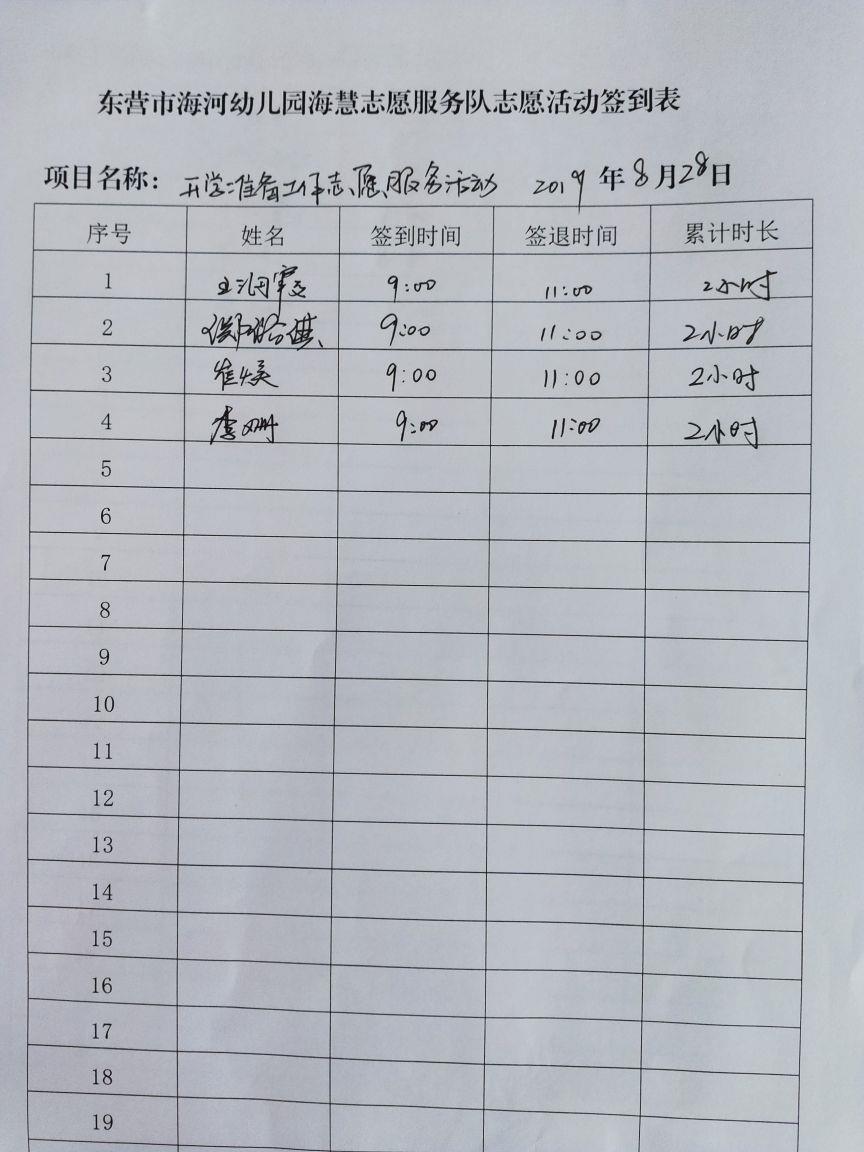 东营市海河幼儿园海慧志愿服务队志愿活动签到表
项目名称： 开学准备工作志愿服务活动 2019 年 8 月 28 日
序号 姓名 签到时间 签退时间 累计时长
1 9:00 11:00 2小时
2 9:00 11:00 2小时
3 崔焕 9:00 11:00 2小时
4 李珊 9:00 11:00 2小时
5
6
7
8
9
10
11
12
13
14
15
16
17
18
19